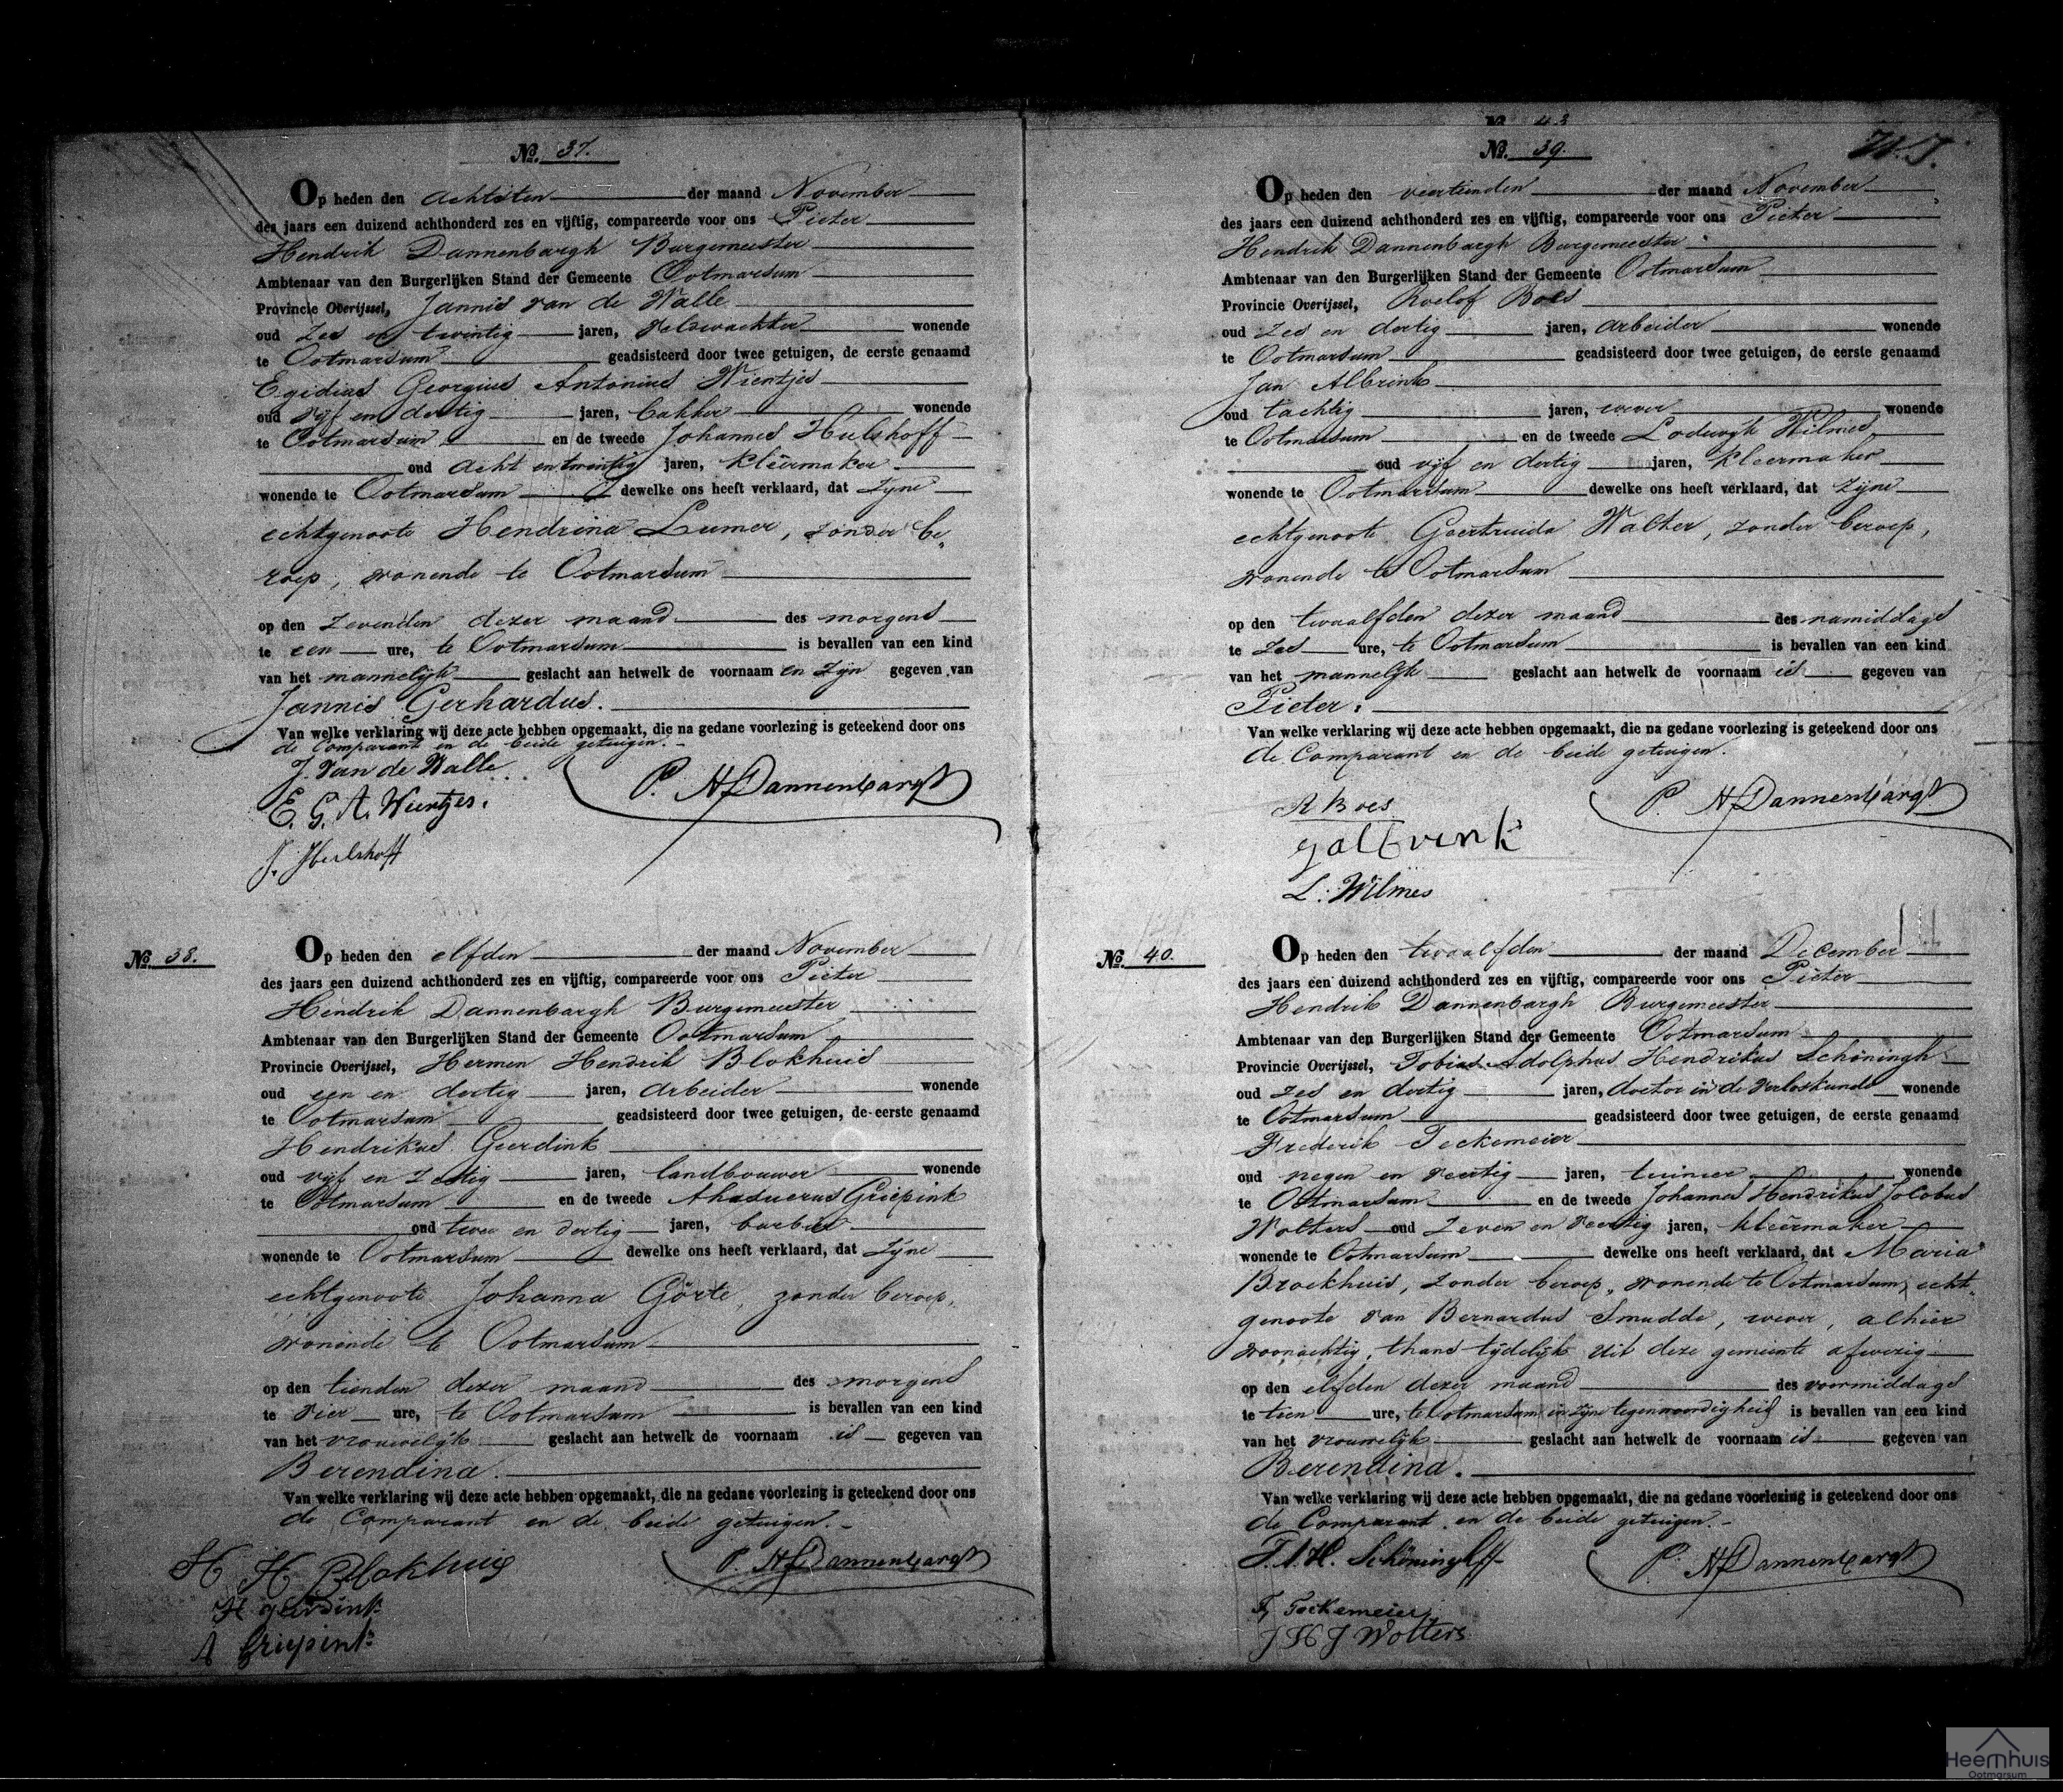 No. 37.
Op heden den achtsten der maand November
des jaars een duizend achthonderd zes en vijftig, compareerde voor ons Pieter
Hendrik Dannenbargh Burgemeester
Ambtenaar van den Burgerlijken Stand der Gemeente Ootmarsum
Provincie Overijssel, Jannis van de Walle
oud zes en twintig jaren, veldwachter wonende
te Ootmarsum geadsisteerd door twee getuigen, de eerste genaamd
Egidius Georgius Antonius Wientjes
oud vijf en dertig jaren, bakker wonende
te Ootmarsum en de tweede Johannes Hulshoff
oud acht en twintig jaren, kleermaker
wonende te Ootmarsum dewelke ons heeft verklaard, dat zijne
echtgenoote Hendrina Lumer, zonder be„
roep, wonende te Ootmarsum
op den zevenden dezer maand des morgens
te een ure, te Ootmarsum is bevallen van een kind
van het mannelijk geslacht aan hetwelk de voornaam en zijn gegeven van
Jannis Gerhardus.
Van welke verklaring wij deze acte hebben opgemaakt, die na gedane voorlezing is geteekend door ons
de Comparant en de beide getuigen.
J. van de Walle
P. H. Dannenbargh
E. G. A. Wientjes.
J. Hulshoff
No. 38.
Op heden den elfden der maand November
des jaars een duizend achthonderd zes en vijftig, compareerde voor ons Pieter
Hendrik Dannenbargh Burgemeester
Ambtenaar van den Burgerlijken Stand der Gemeente Ootmarsum
Provincie Overijssel, Hermen Hendrik Blokhuis
oud een en dertig jaren, arbeider wonende
te Ootmarsum geadsisteerd door twee getuigen, de eerste genaamd
Hendrikus Geerdink
oud vijf en zestig jaren, landbouwer wonende
te Ootmarsum en de tweede Ahasuerus Griepink
oud twee en dertig jaren, barbier
wonende te Ootmarsum dewelke ons heeft verklaard, dat zijne
echtgenoote Johanna Görte, zonder beroep,
wonende te Ootmarsum
op den tienden dezer maand des morgens
te vier ure, te Ootmarsum is bevallen van een kind
van het vrouwelijk geslacht aan hetwelk de voornaam is gegeven van
Berendina.
Van welke verklaring wij deze acte hebben opgemaakt, die na gedane voorlezing is geteekend door ons
de Comparant en de beide getuigen.
H H Blokhuis
P. H. Dannenbargh
H geerdink
A Griepink
No. 43
No. 39.
Op heden den veertienden der maand November
des jaars een duizend achthonderd zes en vijftig, compareerde voor ons Pieter
Hendrik Dannenbargh Burgemeester
Ambtenaar van den Burgerlijken Stand der Gemeente Ootmarsum
Provincie Overijssel, Roelof Boes
oud zes en dertig jaren, arbeider wonende
te Ootmarsum geadsisteerd door twee getuigen, de eerste genaamd
Jan Albrink
oud tachtig jaren, wever wonende
te Ootmarsum en de tweede Lodwijk Wilmes
oud vijf en dertig jaren, kleermaker
wonende te Ootmarsum dewelke ons heeft verklaard, dat zijne
echtgenoote Geertruida Walter, zonder beroep,
wonende te Ootmarsum
op den twaalfden dezer maand des namiddags
te zes ure, te Ootmarsum is bevallen van een kind
van het mannelijk geslacht aan hetwelk de voornaam is gegeven van
Pieter.
Van welke verklaring wij deze acte hebben opgemaakt, die na gedane voorlezing is geteekend door ons
de Comparant en de beide getuigen.
R Boes
P. H. Dannenbargh
J albrink
L. Wilmes
No. 40.
Op heden den twaalfden der maand December
des jaars een duizend achthonderd zes en vijftig, compareerde voor ons Pieter
Hendrik Dannenbargh Burgemeester
Ambtenaar van den Burgerlijken Stand der Gemeente Ootmarsum
Provincie Overijssel, Tobias Adolphus Hendrikus Schöningh
oud zes en dertig jaren, doctor in de verloskunde wonende
te Ootmarsum geadsisteerd door twee getuigen, de eerste genaamd
Frederik Teckemeier
oud negen en veertig jaren, tuinier wonende
te Ootmarsum en de tweede Johannes Hendrikus Jacobus
Wolters oud zeven en veertig jaren, kleermaker
wonende te Ootmarsum dewelke ons heeft verklaard, dat Maria
Broekhuis, zonder beroep, wonende te Ootmarsum, echt„
genoote van Bernardus Smudde, wever, alhier
woonachtig, thans tijdelijk uit deze gemeente afwezig
op den elfden dezer maand des voormiddags
te tien ure, te Ootmarsum in zijne tegenwoordigheid is bevallen van een kind
van het vrouwelijk geslacht aan hetwelk de voornaam is gegeven van
Berendina.
Van welke verklaring wij deze acte hebben opgemaakt, die na gedane voorlezing is geteekend door ons
de Comparant en de beide getuigen.
T. A. H. Schöningh
P. H. Dannenbargh
F. Teckemeier
J H J Wolters
Heemhuis
Ootmarsum